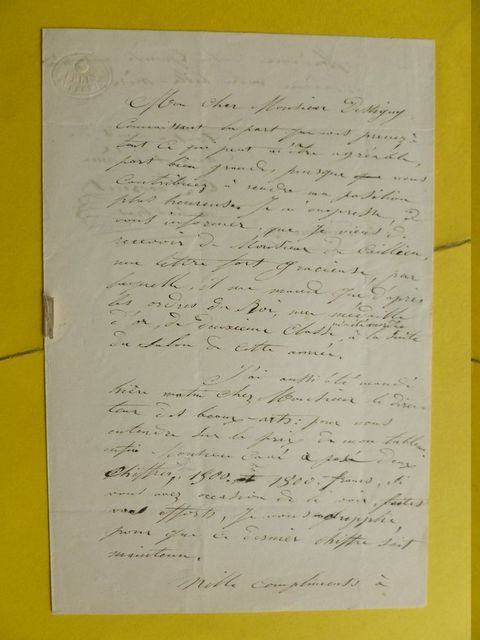 Mon cher Monsieur Destigny
Connaissant la part que vous prenez à
tout ce qui peut m'être agréable,
part bien grande, puisque vous
contribuez à rendre ma position
plus heureuse. Je m'empresse, de
vous informer, que je viens de
recevoir de Monsieur de Cailleux,
une lettre fort gracieuse, par
laquelle, il me mande que d'après
les ordres du Roi, une médaille
d'or, de deuxième classe, m'est décernée à la suite
du salon de cette année.
J'ai aussi été mandé
hier matin chez Monsieur le direc-
teur des beaux-arts: pour nous
entendre sur le prix de mon tableau
enfin Monsieur Cavé a posé deux
chiffres, 1500. à 1800. francs, si
vous avez occasion de le voir, faites
vos efforts, je vous supplie,
pour que ce dernier chiffre soit
maintenu.
Mille compliments à